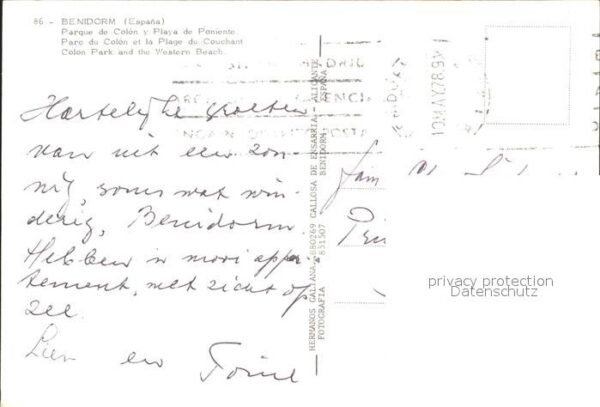 86 - BENIDORM (España)
Parque de Colón y Playa de Poniente.
Parc du Colón et la Plage du Couchant
Colon Park and the Western Beach.
Hartelijke groeten
van uit een zon-
nig, soms wat win-
derig, Benidorm.
Hebben n mooi appar-
tement, met zicht op
zee.
Lien en Toine
HERMANOS GALIANA, 880269 CALLOSA DE ENSARRIA - ALICANTE
FOTOGRAFIA 851507 BENIDORM - ESPAÑA
Fam
privacy protection
Datenschutz